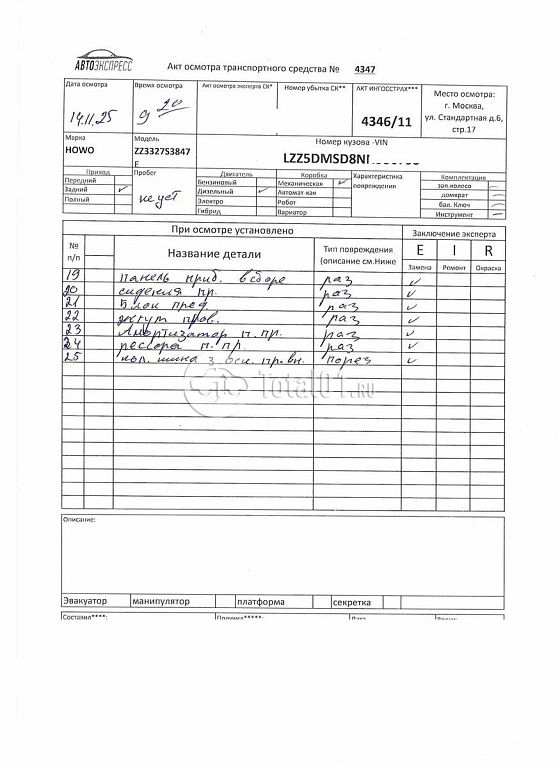 АВТОЭКСПРЕСС
Акт осмотра транспортного средства № 4347
Дата осмотра
14.11.25
Время осмотра
9 20
Акт осмотра эксперта СК*
Номер убытка СК**
АКТ ИНГОССТРАХ***
4346/11
Место осмотра:
г. Москва,
ул. Стандартная д.6,
стр.17
Марка
HOWO
Модель
ZZ3327S3847
E
Номер кузова -VIN
LZZ5DMSD8NI
Привод
Передний
Задний ✓
Полный
Пробег
не уст
Двигатель
Бензиновый
Дизельный ✓
Электро
Гибрид
Коробка
Механическая ✓
Автомат кая
Робот
Вариатор
Характеристика
повреждения
Комплектация
зап.колесо —
домкрат —
бал. Ключ —
Инструмент —
При осмотре установлено
Заключение эксперта
№
п/п
Название детали
Тип повреждения
(описание см.Ниже
E I R
Замена Ремонт Окраска
19 панель приб. в сборе раз ✓
20 сидения пр. раз ✓
21 Блок пред. раз ✓
22 жгут пров. раз ✓
23 Амортизатор п. пр. раз ✓
24 рессора п. пр. раз ✓
25 кол. шина 3 оси пр. вн. порез ✓
Total01.RU
Описание:
Эвакуатор манипулятор платформа секретка
Составил****: